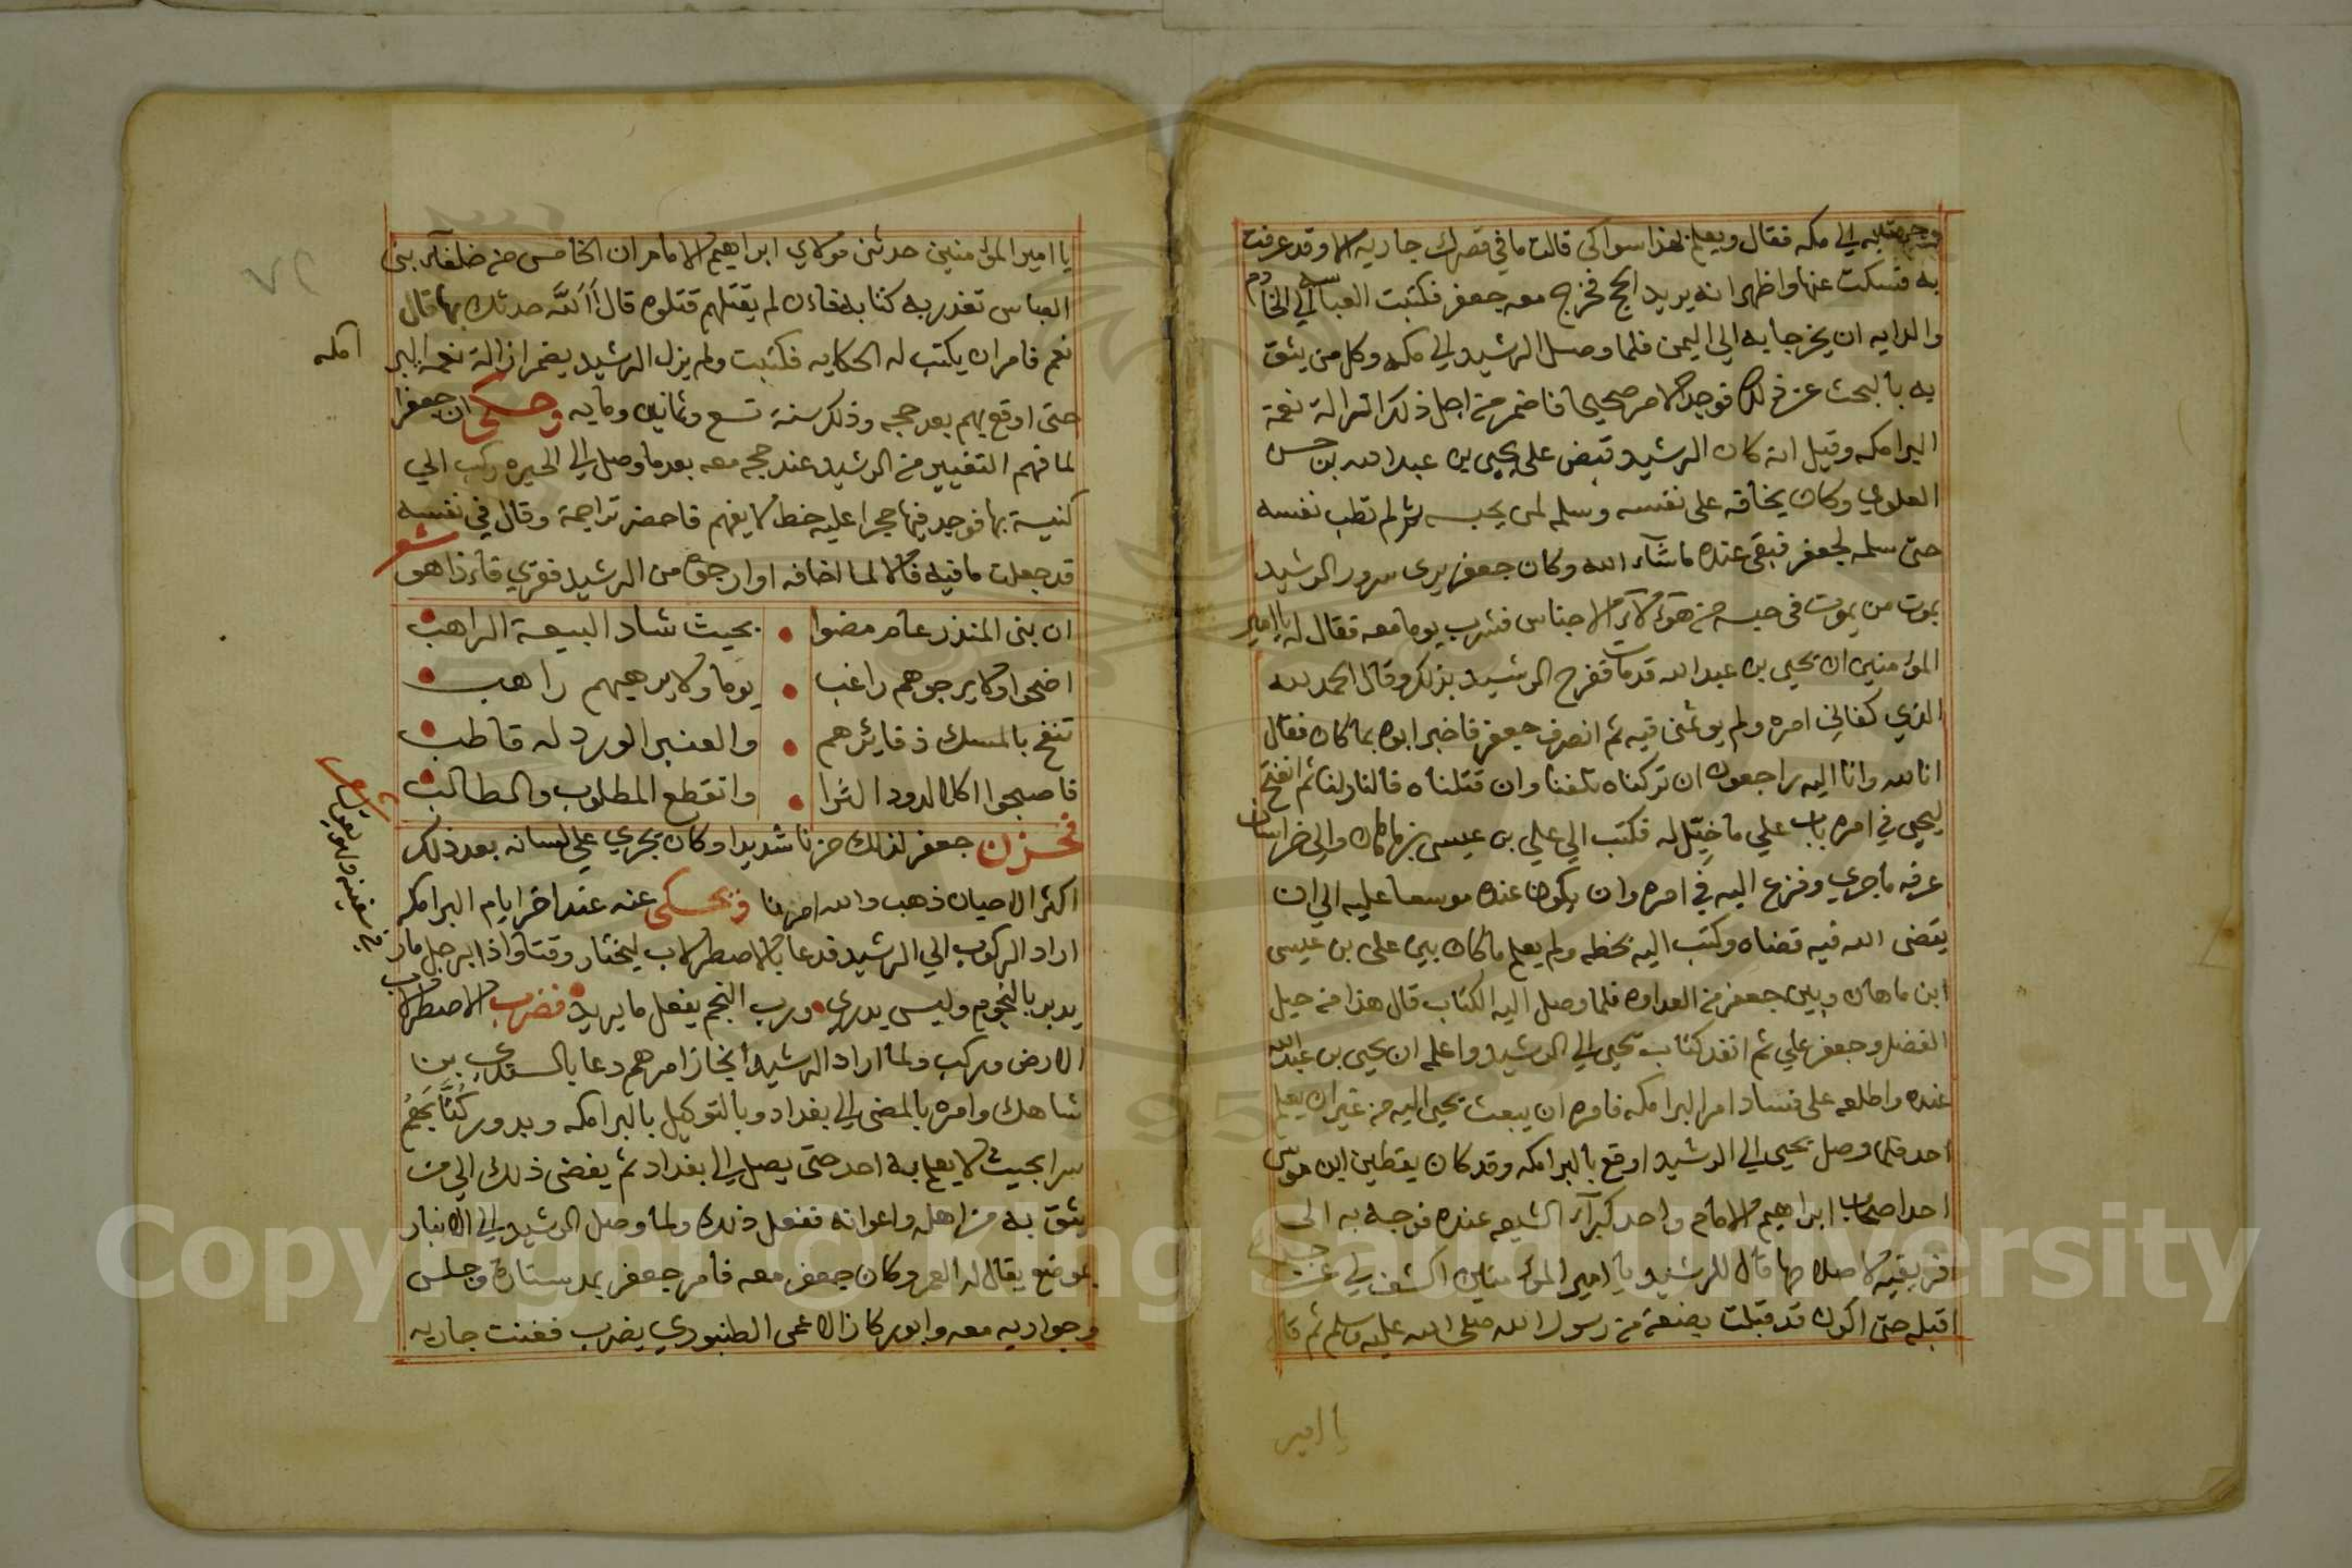 ووجهته الي مكه فقال ويعلم بهذا سواكي قالت ما في قصرك جاريه الا وقد عرفت
به فسكت عنها واظهر انه يريد الحج فخرج معه جعفر فكتبت العباسه الي الخادم
والدايه ان يخرجا به الي اليمن فلما وصل الرشيد الي مكه وكل من يثق
به بالبحث عن ذلك فوجد الامر صحيحا فاضمر من اجل ذلك ازالة نعمة
البرامكه وقيل انه كان الرشيد قبض على يحيى بن عبد الله بن حسن
العلوي وكان يخافه على نفسه وسلمه لمن يحبسه ثم لم تطب نفسه
حتى سلمه لجعفر فبقى عنده ماشآء الله وكان جعفر يرى سرور الرشيد
بموت من يموت في حبسه من هؤلآء الاجناس فشرب يوما معه فقال له يا امير
المؤمنين ان يحيى بن عبد الله قد مات ففرح الرشيد بذلك وقال الحمد لله
الذي كفاني امره ولم يوثمني فيه ثم انصرف جعفر فاخبر ابوه بما كان فقال
انا لله وانا اليه راجعون ان تركناه تلفنا وان قتلناه فالنار لنا ثم انفتح
ليحيى في امره باب علي ما خيل له فكتب الي علي بن عيسى بن ماهان والي خراسان
عرفه ما جري وفزع اليه في امره وان يكون عنده موسعا عليه الي ان
يقضى الله فيه قضاه وكتب اليه بخطه ولم يعلم ما كان بين على بن عيسى
ابن ماهان وبين جعفر من العداوه فلما وصل اليه الكتاب قال هذا من حيل
الفضل وجعفر علي ثم انفد كتاب يحيى الي الرشيد واعلمه ان يحيى بن عبد الله
عنده واطلعه على فساد امر البرامكه فامره ان يبعث يحيى اليه من غير ان يعلم
احد فلما وصل يحيى الي الرشيد اوقع بالبرامكه وقد كان يقطين ابن موسى
احد اصحاب ابراهيم الامام واحد كبرآء الشيعه عنده فوجه به الى
افريقيه لاصلاحها فقال للرشيد يا امير المؤمنين اكشف لي عن
اقبله حتى اكون قد قبلت بضعة من رسول الله صلى الله عليه وسلم ثم قال
يا امير
يا امير المؤمنين حدثنى مولاي ابراهيم الامام ان الخامس من خلفآء بنى
العباس تغدر به كتابه فاءن لم يقتلهم قتلوه قال أالله حدثك بهذا قال
نعم فامر ان يكتب له الحكايه فكتبت ولم يزل الرشيد يضمر ازالة نعمة البر
امكه
حتى اوقع بهم بعد حجه وذلك سنة تسع وثمانين ومايه وحكى ان جعفرا
لما فهم التغيير من الرشيد عند حجه معه بعد ما وصل الي الحيره ركب الي
كنيسة بها فوجد فيها حجرا عليه خط لا يفهم فاحضر تراجمة وقال في نفسه
قد جعلت ما فيه فالا لما اخافه او ارجوه من الرشيد فقري فاءذا هو شعر
ان بنى المنذر عام مضوا • بحيث شاد البيعة الراهب
اضحوا ولا يرجوهم راغب • يوما ولا يرهبهم راهب
تنفح بالمسك ذفايرهم • والعنبر الورد له قاطب
فاصبحوا اكلا لدود الثرا • وانقطع المطلوب والطالب
فحزن جعفر لذلك حزنا شديدا وكان يجري علي لسانه بعد ذلك
اكثر الاحيان ذهب والله امرنا ويحكى عنه عند اخر ايام البرامكه
اراد الركوب الي الرشيد فدعا بالاصطرلاب ليختار وقتا واذا برجل مار
في سفينه وهو يقول شعر
يدبر بالنجوم وليس يدري • ورب النجم يفعل ما يريد • فضرب الاصطرلاب
الارض وركب ولما اراد الرشيد انجاز امرهم دعا بالسندي بن
شاهك وامره بالمضى الي بغداد وبالتوكيل بالبرامكه وبدور كُتَّابهم
سرا بحيث لا يعلم به احد حتى يصل الي بغداد ثم يفضى ذلك الي من
يثق به من اهله واعوانه ففعل ذلك ولما وصل الرشيد الي الانبار
بموضع يقال له العمر وكان جعفر معه فامر جعفر بمد ستارة وجلس
وجواريه معه وابو ركاز الاعمى الطنبوري يضرب فغنت جاريه